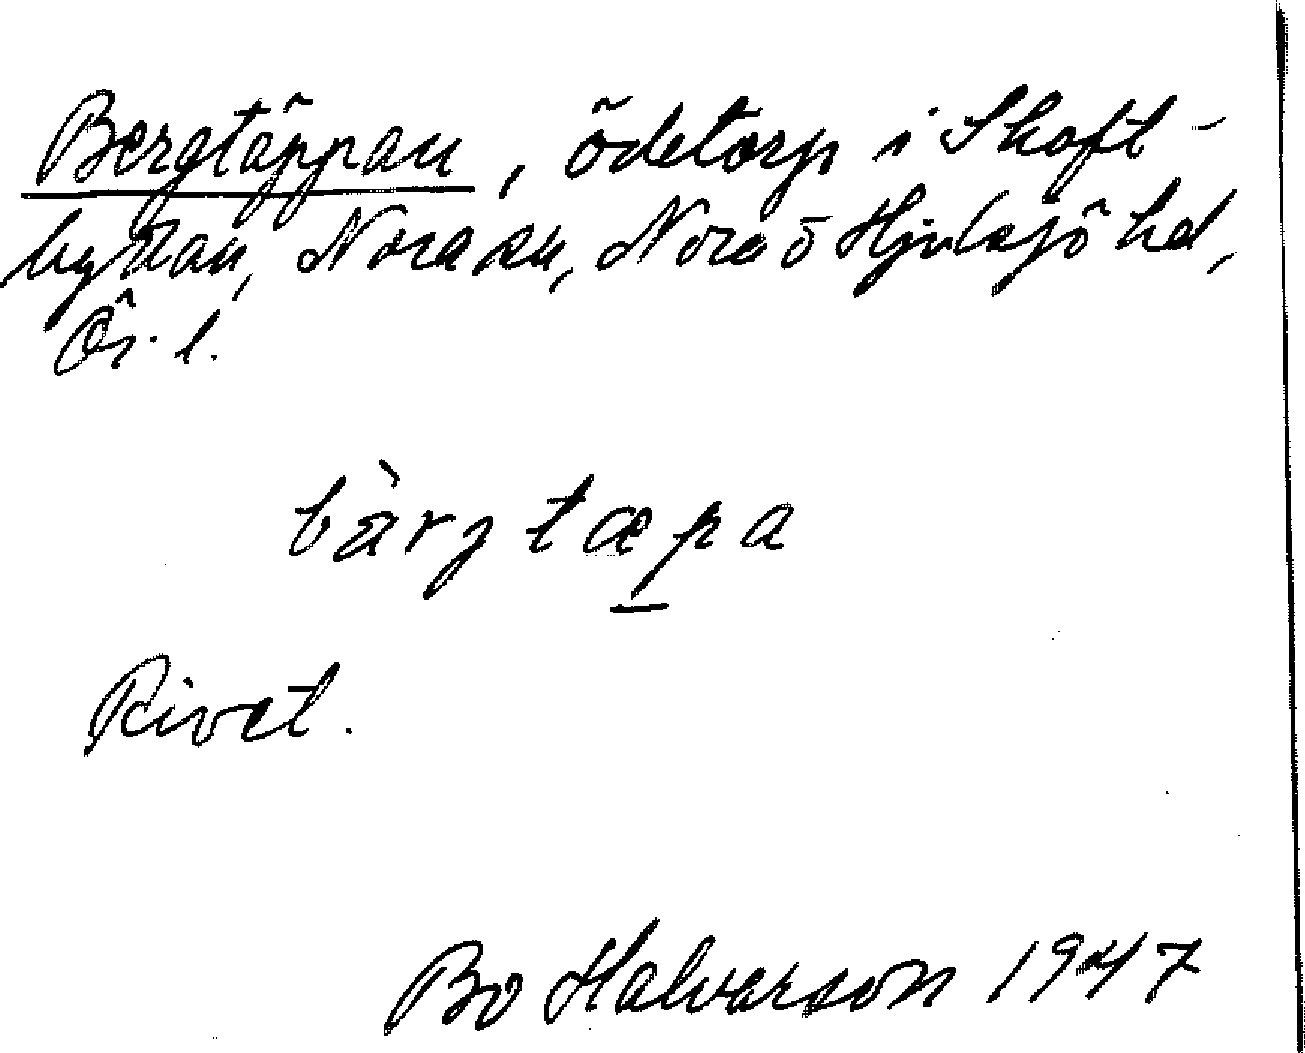 Bergtäppan, ödetorp i Skoft-
byttan, Nora sn, Nora o Hjulsjö hd,
Ör. l.
bàrjtæpa
Rivet.
Bo Halvarson 1947